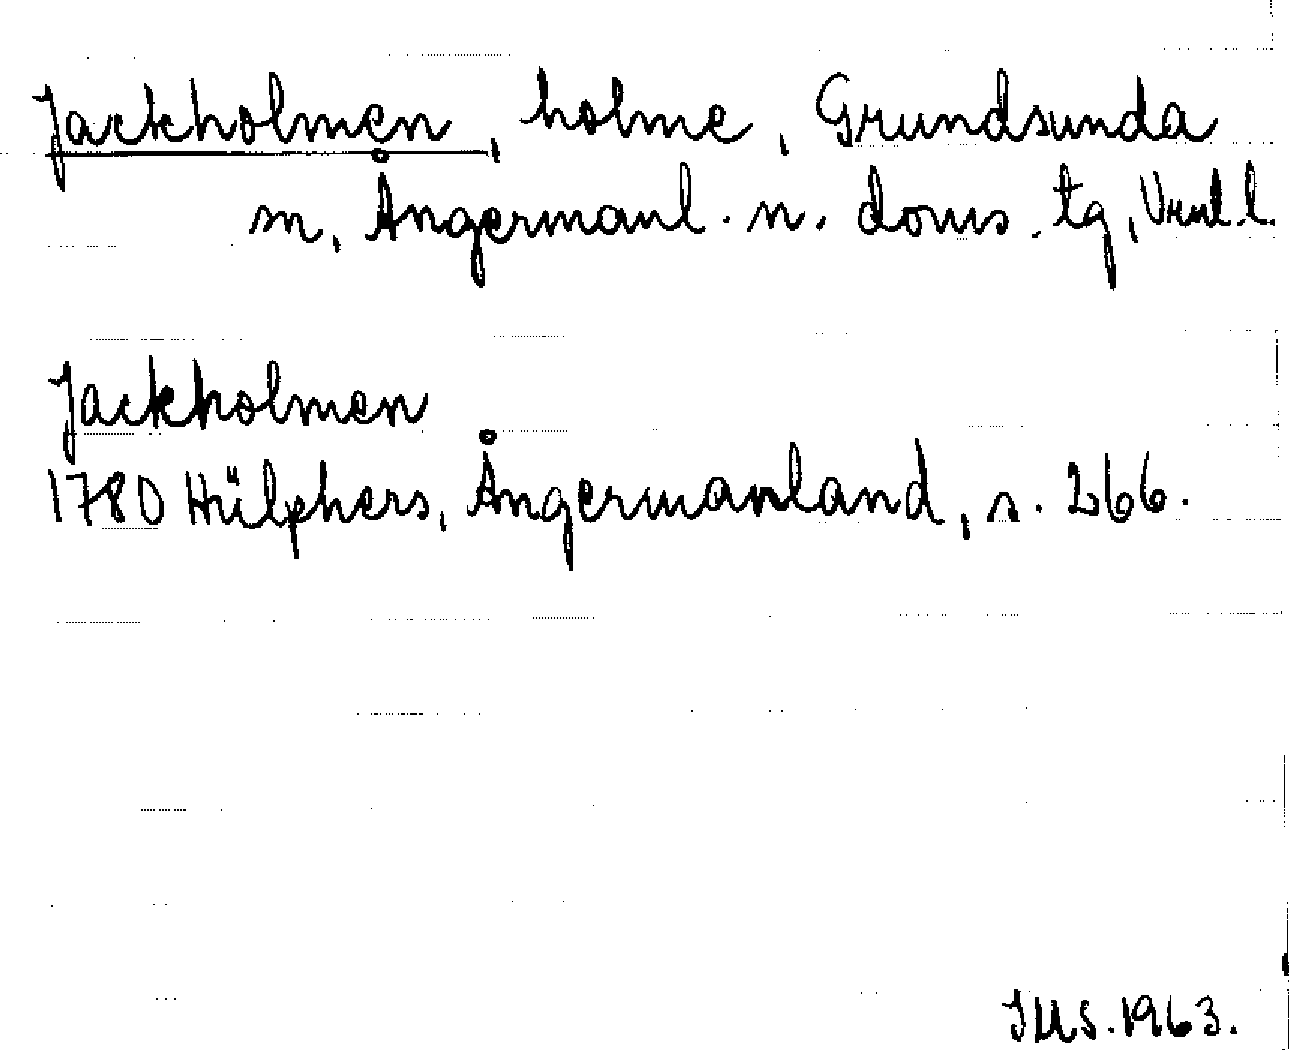 Jackholmen, holme, Grundsunda
sn, Ångermanl. n. doms. tg, Vnrll.
Jackholmen
1780 Hülphers, Ångermanland, s. 266.
IMS. 1963.